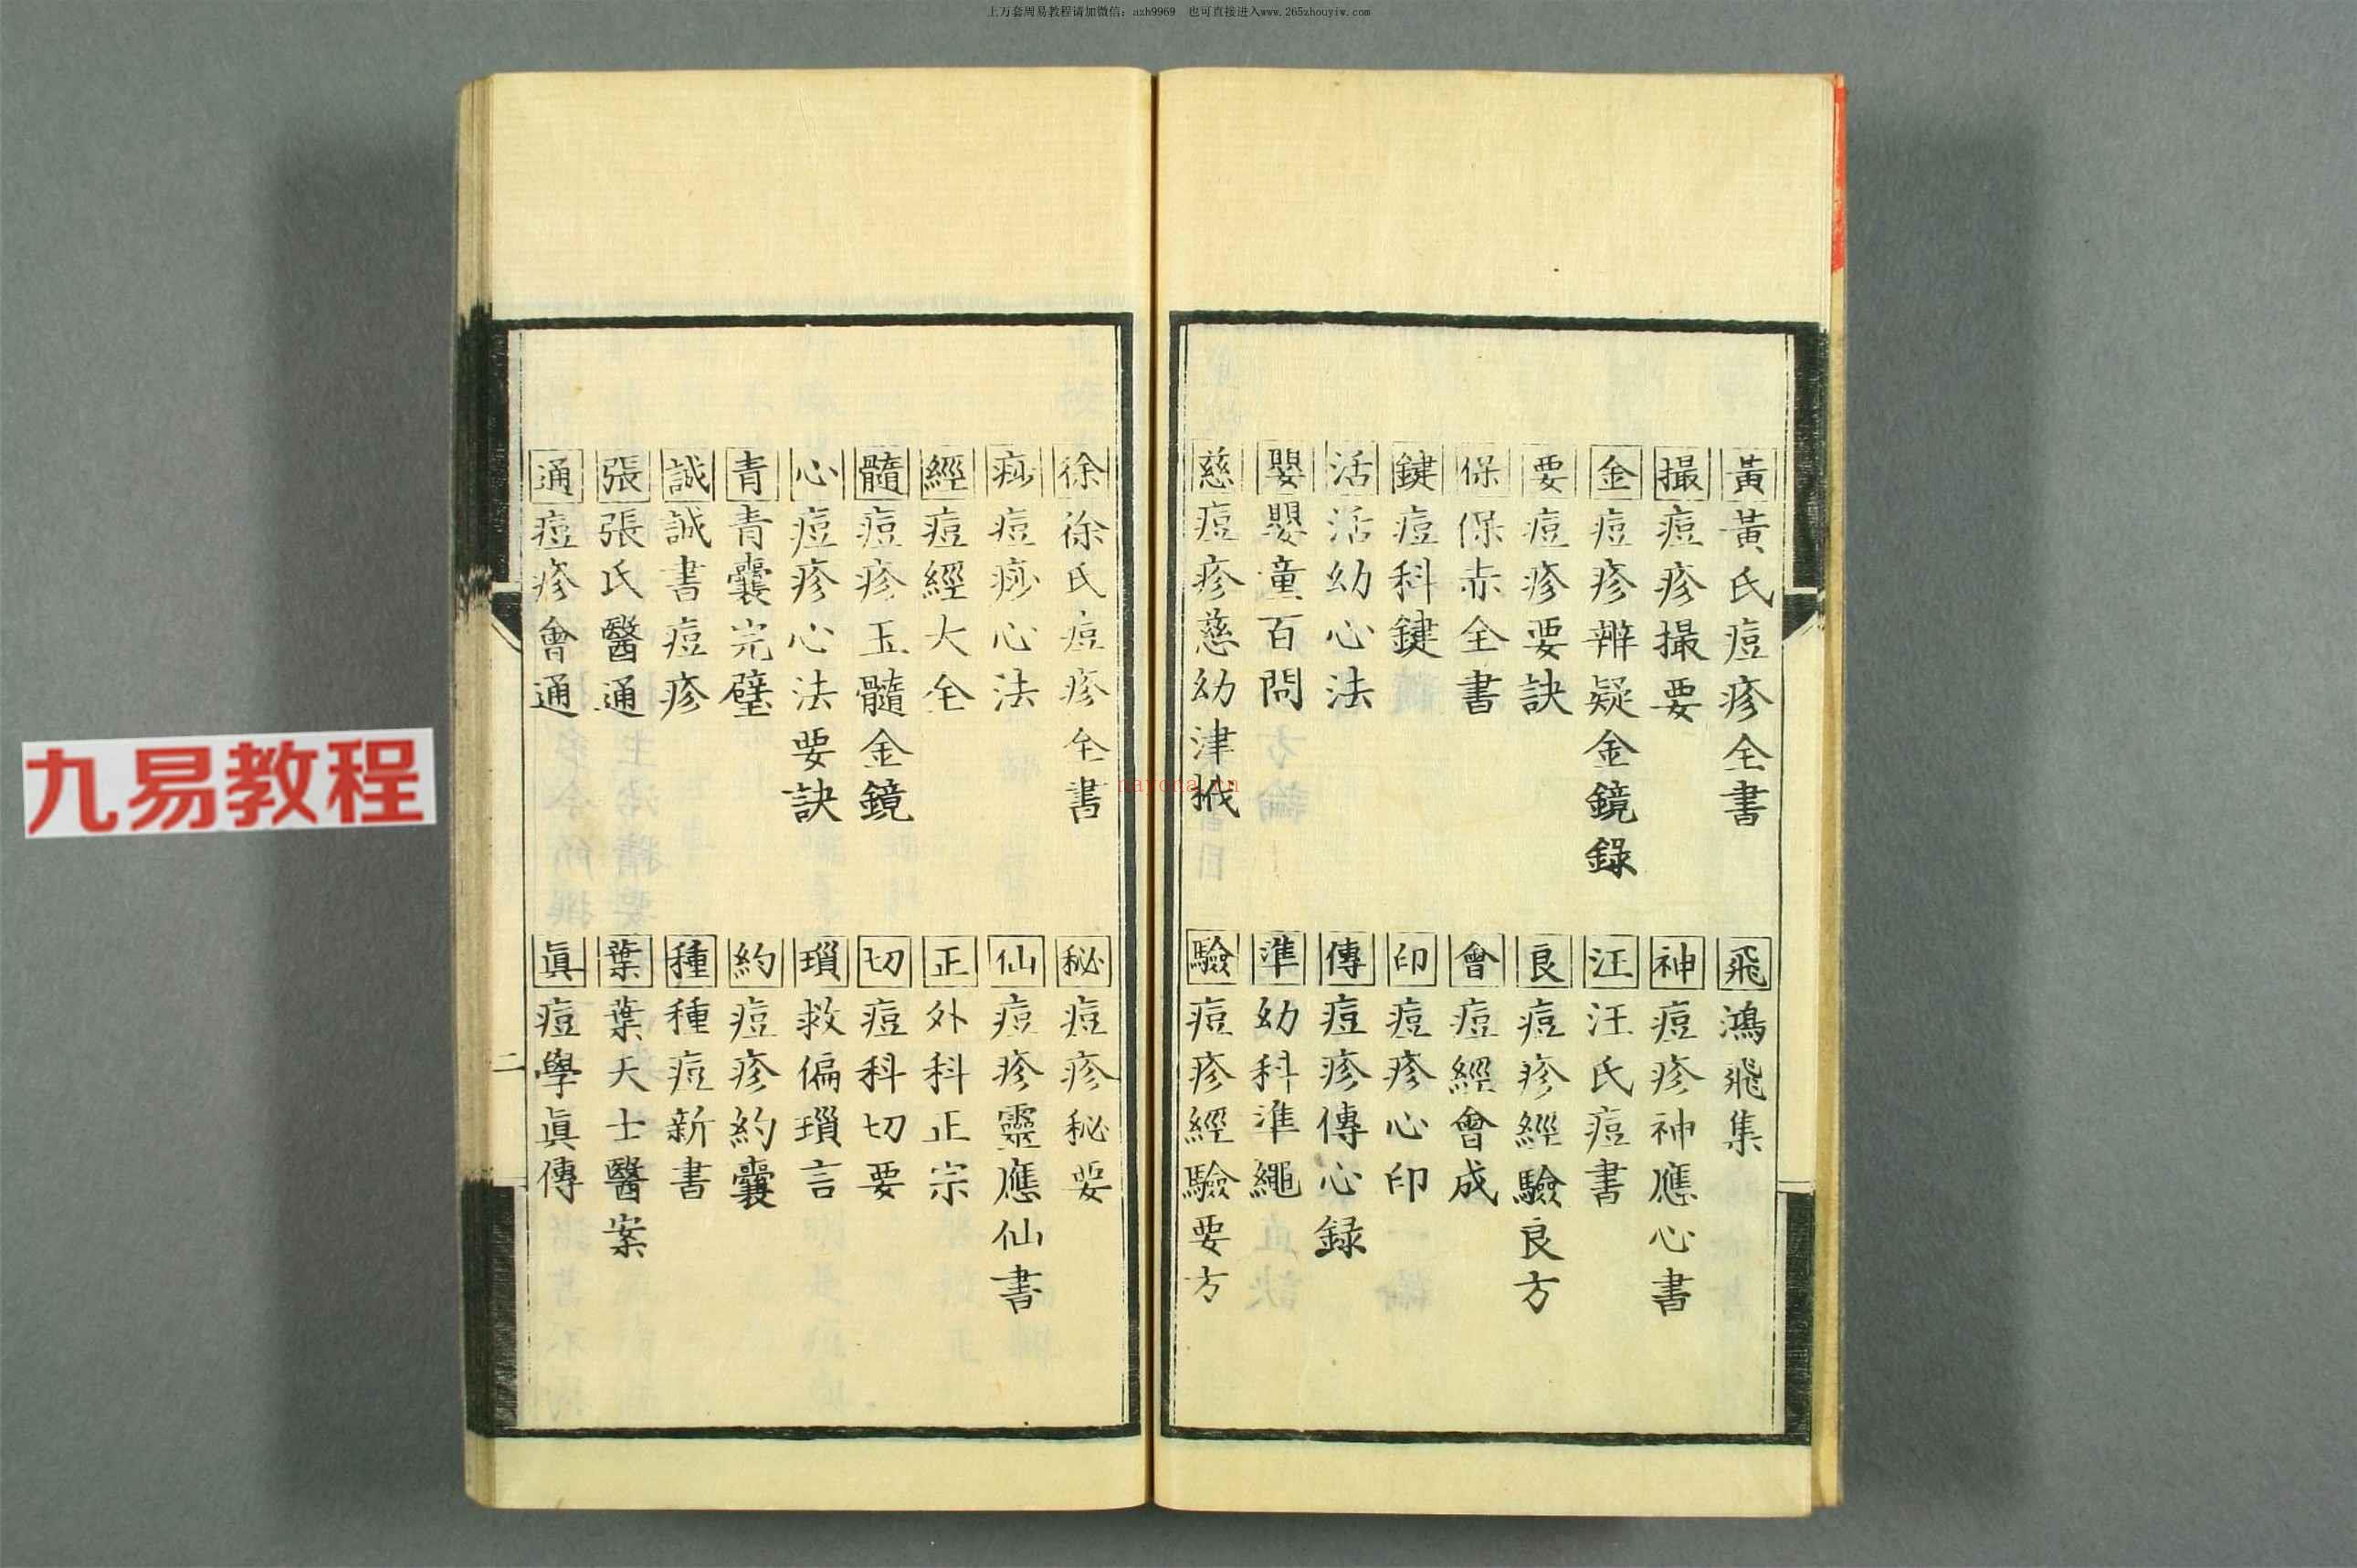 上万套周易教程请加微信：azh9969　也可直接进入www.265zhouyiw.com
黃黃氏痘疹全書
飛鴻飛集
撮痘疹撮要
神痘疹神應心書
金痘疹辨疑金鏡錄
汪汪氏痘書
要痘疹要訣
良痘疹經驗良方
保保赤全書
會痘經會成
鍵痘科鍵
印痘疹心印
活活幼心法
傳痘疹傳心錄
嬰嬰童百問
準幼科準繩
慈痘疹慈幼津栰
驗痘疹經驗要方
徐徐氏痘疹全書
秘痘疹秘要
痧痘痧心法
仙痘疹靈應仙書
經痘經大全
正外科正宗
髓痘疹玉髓金鏡
切痘科切要
心痘疹心法要訣
瑣救偏瑣言
青青囊完璧
約痘疹約囊
誠誠書痘疹
種種痘新書
張張氏醫通
葉葉天士醫案
通痘疹會通
眞痘學眞傳
二
九易教程
nayona.cn